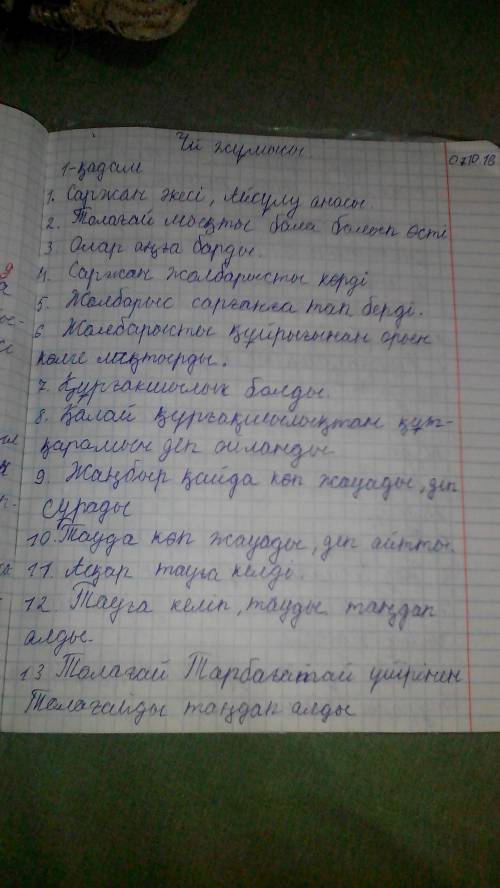 Үй жұмысы.
07.10.18
1-қадам
1. Саржан әкесі, Айсұлу анасы
2. Толағай мықты бала болып өсті
3. Олар аңға барды.
4. Саржан жолбарысты көрді
5. Жолбарыс сарғанға тап берді.
6. Жолбарысты құйрығынан орып
көлге лақтырды.
7. Құрғакшылық болды.
8. Қалай құрғақшылықтан құт-
қарамын деп ойланды
9. Жаңбыр қайда көп жауады, деп
сұрады
10. Тауда көп жауады, деп айтты.
11. Асқар тауға келді.
12. Тауға келіп, тауды таңдап
алды.
13 Толағай Тарбағатай үйірінен
Толағайды таңдап алды